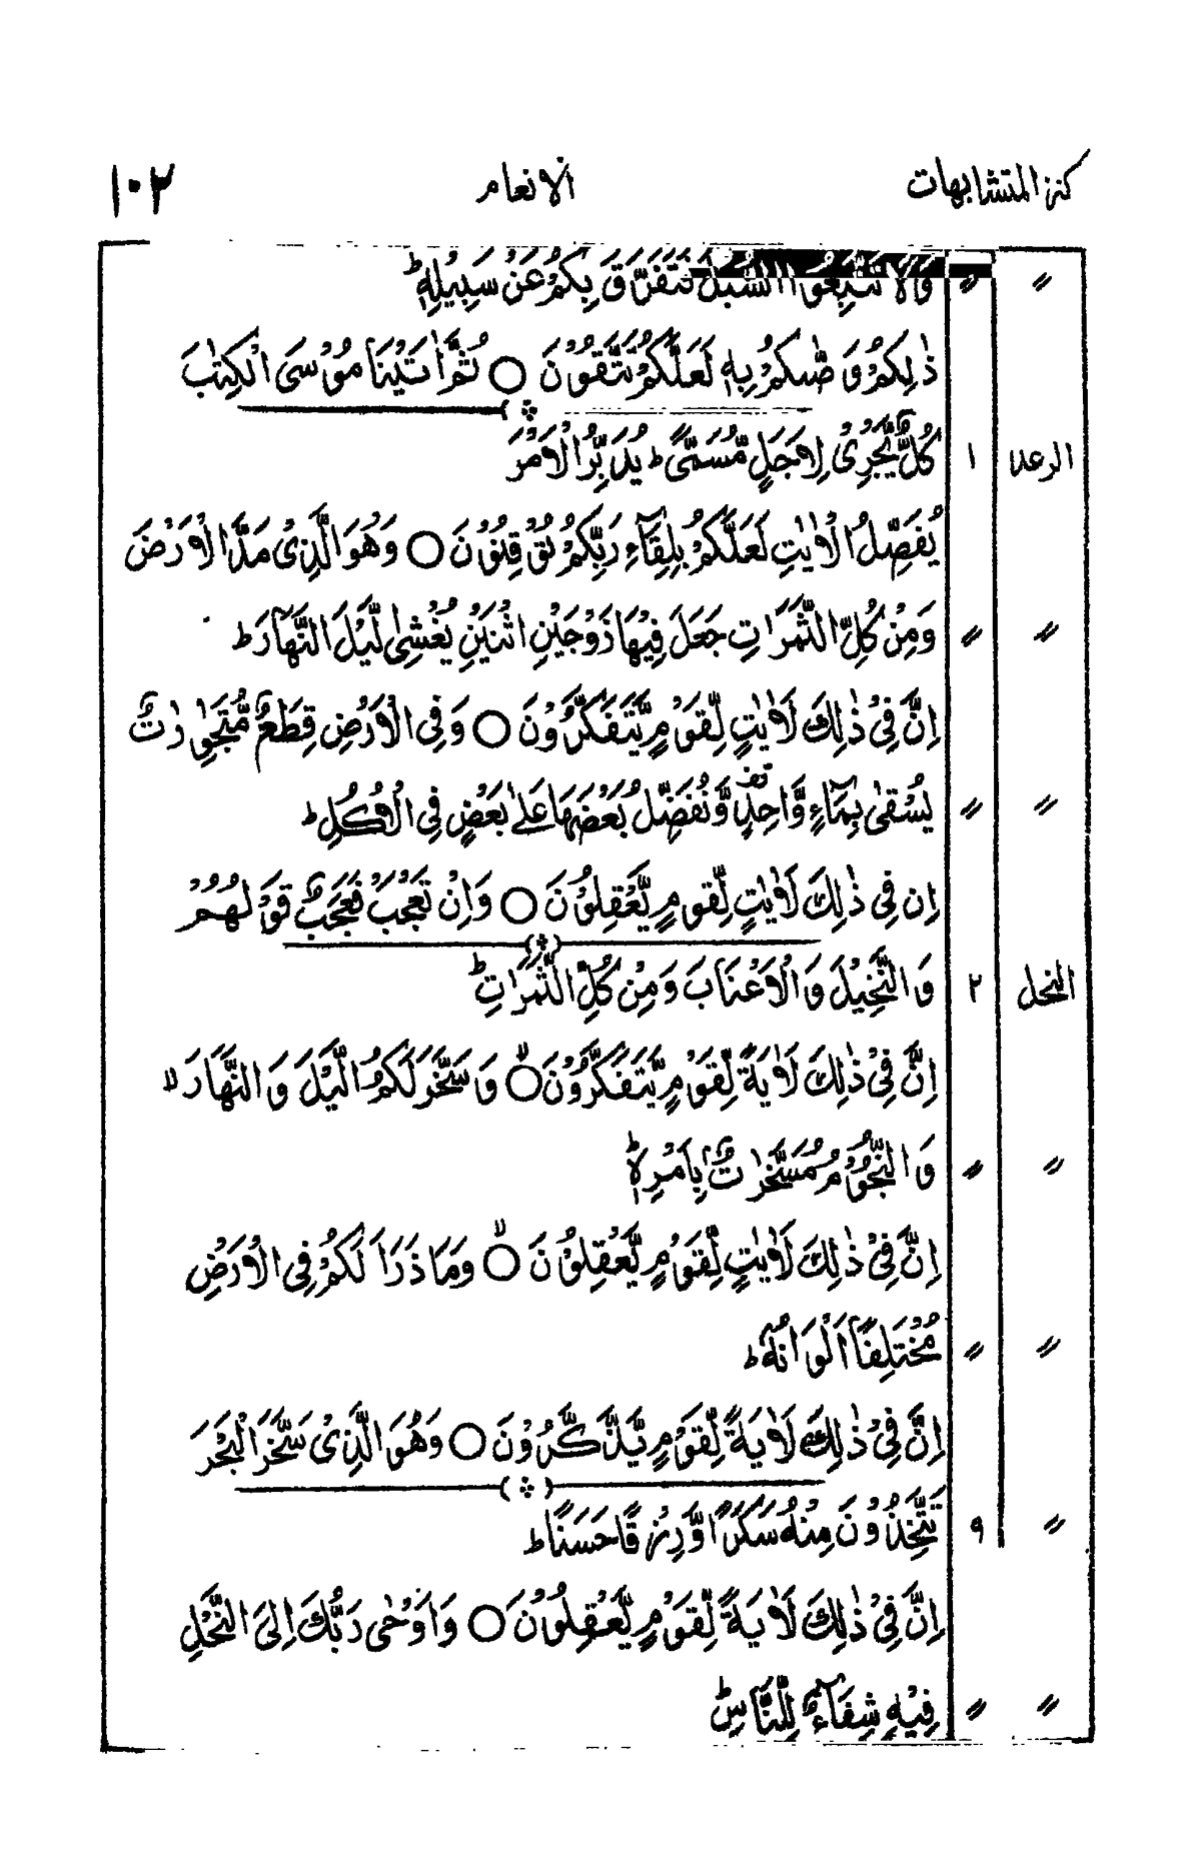 كنز المتشابهات الانعام ١٠٢
〃 〃 وَلَا تَتَّبِعُوا السُّبُلَ فَتَفَرَّقَ بِكُمْ عَنْ سَبِيْلِهٖ ؕ
ذٰلِكُمْ وَصّٰىكُمْ بِهٖ لَعَلَّكُمْ تَتَّقُوْنَ ○ ثُمَّ اٰتَيْنَا مُوْسَى الْكِتٰبَ
الرعد ١ كُلٌّ يَّجْرِىْ لِاَجَلٍ مُّسَمًّى ؕ يُدَبِّرُ الْاَمْرَ
يُفَصِّلُ الْاٰيٰتِ لَعَلَّكُمْ بِلِقَآءِ رَبِّكُمْ تُوْقِنُوْنَ ○ وَهُوَ الَّذِىْ مَدَّ الْاَرْضَ
〃 〃 وَمِنْ كُلِّ الثَّمَرٰتِ جَعَلَ فِيْهَا زَوْجَيْنِ اثْنَيْنِ يُغْشِى الَّيْلَ النَّهَارَ ؕ
اِنَّ فِىْ ذٰلِكَ لَاٰيٰتٍ لِّقَوْمٍ يَّتَفَكَّرُوْنَ ○ وَفِى الْاَرْضِ قِطَعٌ مُّتَجٰوِرٰتٌ
〃 〃 يُسْقٰى بِمَآءٍ وَّاحِدٍ قف وَّنُفَضِّلُ بَعْضَهَا عَلٰى بَعْضٍ فِى الْاُكُلِ ؕ
اِن فِىْ ذٰلِكَ لَاٰيٰتٍ لِّقَومٍ يَّعْقِلُوْنَ ○ وَاِنْ تَعْجَبْ فَعَجَبٌ قَوْلُهُمْ
النحل ٢ وَالنَّخِيْلَ وَالْاَعْنَابَ وَمِنْ كُلِّ الثَّمَرٰتِ ؕ
اِنَّ فِىْ ذٰلِكَ لَاٰيَةً لِّقَوْمٍ يَّتَفَكَّرُوْنَ ○ۙ وَسَخَّرَ لَكُمُ الَّيْلَ وَالنَّهَارَ ۙ
〃 〃 وَالنُّجُوْمُ مُسَخَّرٰتٌۢ بِاَمْرِهٖ ؕ
اِنَّ فِىْ ذٰلِكَ لَاٰيٰتٍ لِّقَوْمٍ يَّعْقِلُوْنَ ○ۙ وَمَا ذَرَاَ لَكُمْ فِى الْاَرْضِ
〃 〃 مُخْتَلِفًا اَلْوَانُهٗ ؕ
اِنَّ فِىْ ذٰلِكَ لَاٰيَةً لِّقَوْمٍ يَّذَّكَّرُوْنَ ○ وَهُوَ الَّذِىْ سَخَّرَ الْبَحْرَ
〃 ٩ تَتَّخِذُوْنَ مِنْهُ سَكَرًا وَّرِزْقًا حَسَنًا ؕ
اِنَّ فِىْ ذٰلِكَ لَاٰيَةً لِّقَوْمٍ يَّعْقِلُوْنَ ○ وَاَوْحٰى رَبُّكَ اِلَى النَّحْلِ
〃 〃 فِيْهِ شِفَآءٌ لِّلنَّاسِ ؕ